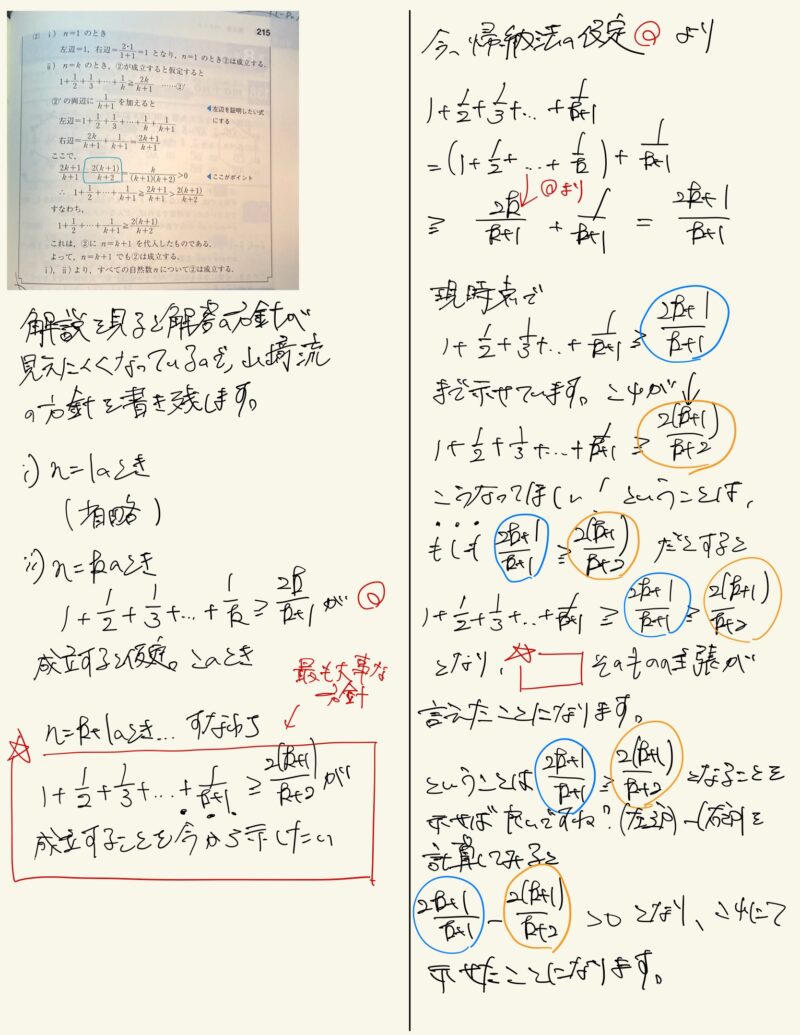 215
(2) i) n=1 のとき
左辺=1, 右辺=2・1/(1+1)=1 となり, n=1 のとき②は成立する.
ii) n=k のとき, ②が成立すると仮定すると
1+1/2+1/3+…+1/k≧2k/(k+1) ……②′
②′の両辺に 1/(k+1) を加えると
左辺=1+1/2+1/3+…+1/k+1/(k+1)
◀左辺を証明したい式にする
右辺=2k/(k+1)+1/(k+1)=(2k+1)/(k+1)
ここで,
(2k+1)/(k+1)-2(k+1)/(k+2)=k/((k+1)(k+2))>0
◀ここがポイント
∴ 1+1/2+…+1/(k+1)≧(2k+1)/(k+1)>2(k+1)/(k+2)
すなわち,
1+1/2+…+1/(k+1)≧2(k+1)/(k+2)
これは, ②に n=k+1 を代入したものである.
よって, n=k+1 でも②は成立する.
i), ii) より, すべての自然数 n について②は成立する.
解説を見ると解答の方針が
見えにくくなっているので, 山﨑流
の方針を書き残します。
i) n=1のとき
(省略)
ii) n=kのとき
1+1/2+1/3+…+1/k≧2k/(k+1)が @
成立すると仮定。このとき
最も大事な
方針
☆ n=k+1のとき… すなわち
1+1/2+1/3+…+1/(k+1)≧2(k+1)/(k+2)が
成立することを今から示したい
今、帰納法の仮定@より
1+1/2+1/3+…+1/(k+1)
=(1+1/2+…+1/k)+1/(k+1)
@より
≧ 2k/(k+1)+1/(k+1)=(2k+1)/(k+1)
現時点で
1+1/2+1/3+…+1/(k+1)≧(2k+1)/(k+1)
まで示せています。これが↓
1+1/2+1/3+…+1/(k+1)≧2(k+1)/(k+2)
こうなってほしい! ということは、
もしも (2k+1)/(k+1)≧2(k+1)/(k+2) だとすると
1+1/2+1/3+…+1/(k+1)≧(2k+1)/(k+1)≧2(k+1)/(k+2)
となり、☆ そのものの主張が
言えたことになります。
ということは (2k+1)/(k+1)≧2(k+1)/(k+2) となることを
示せば良いですね? (左辺)-(右辺)を
計算してみると
(2k+1)/(k+1)-2(k+1)/(k+2)>0 となり、これにて
示せたことになります。